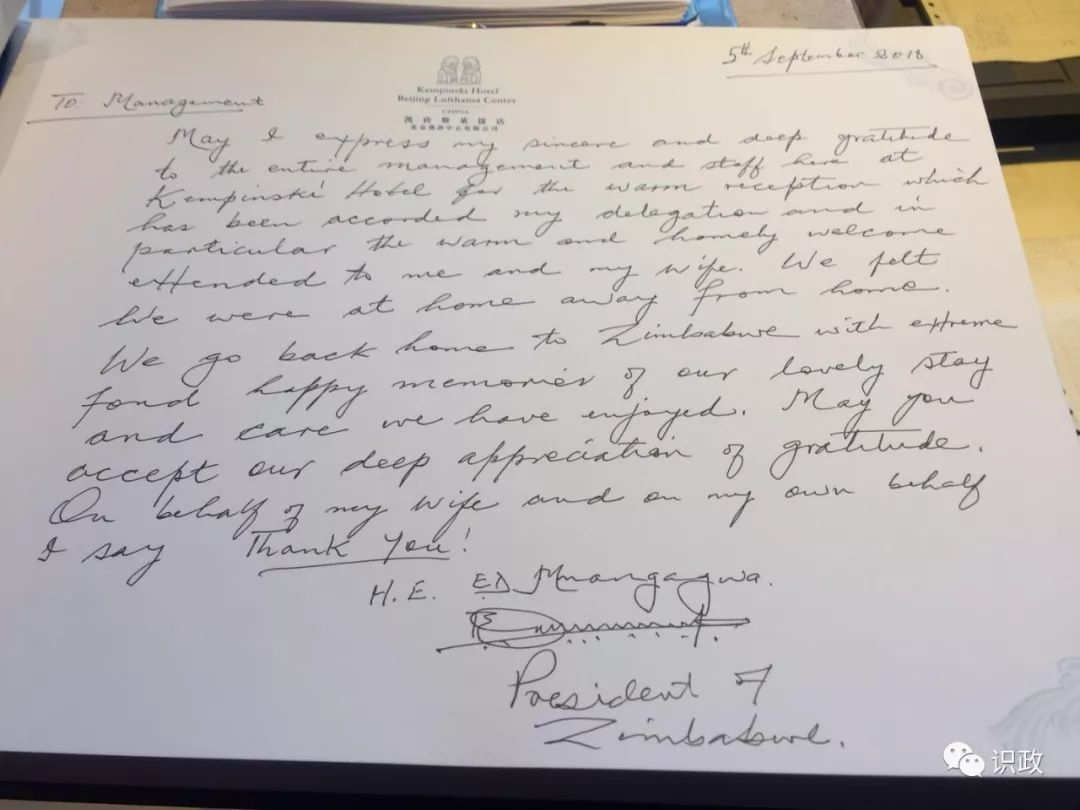 5th September 2018
Kempinski Hotel
Beijing Lufthansa Center
CHINA
凯宾斯基饭店
北京燕莎中心有限公司
To: Management
May I express my sincere and deep gratitude
to the entire management and staff here at
Kempinski Hotel for the warm reception which
has been accorded my delegation and in
particular the warm and homely welcome
extended to me and my wife. We felt
We were at home away from home.
We go back home to Zimbabwe with extreme
fond happy memories of our lovely stay
and care we have enjoyed. May you
accept our deep appreciation of gratitude.
On behalf of my wife and on my own behalf
I say Thank You!
H.E. ED Mnangagwa.
President of
Zimbabwe.
识政